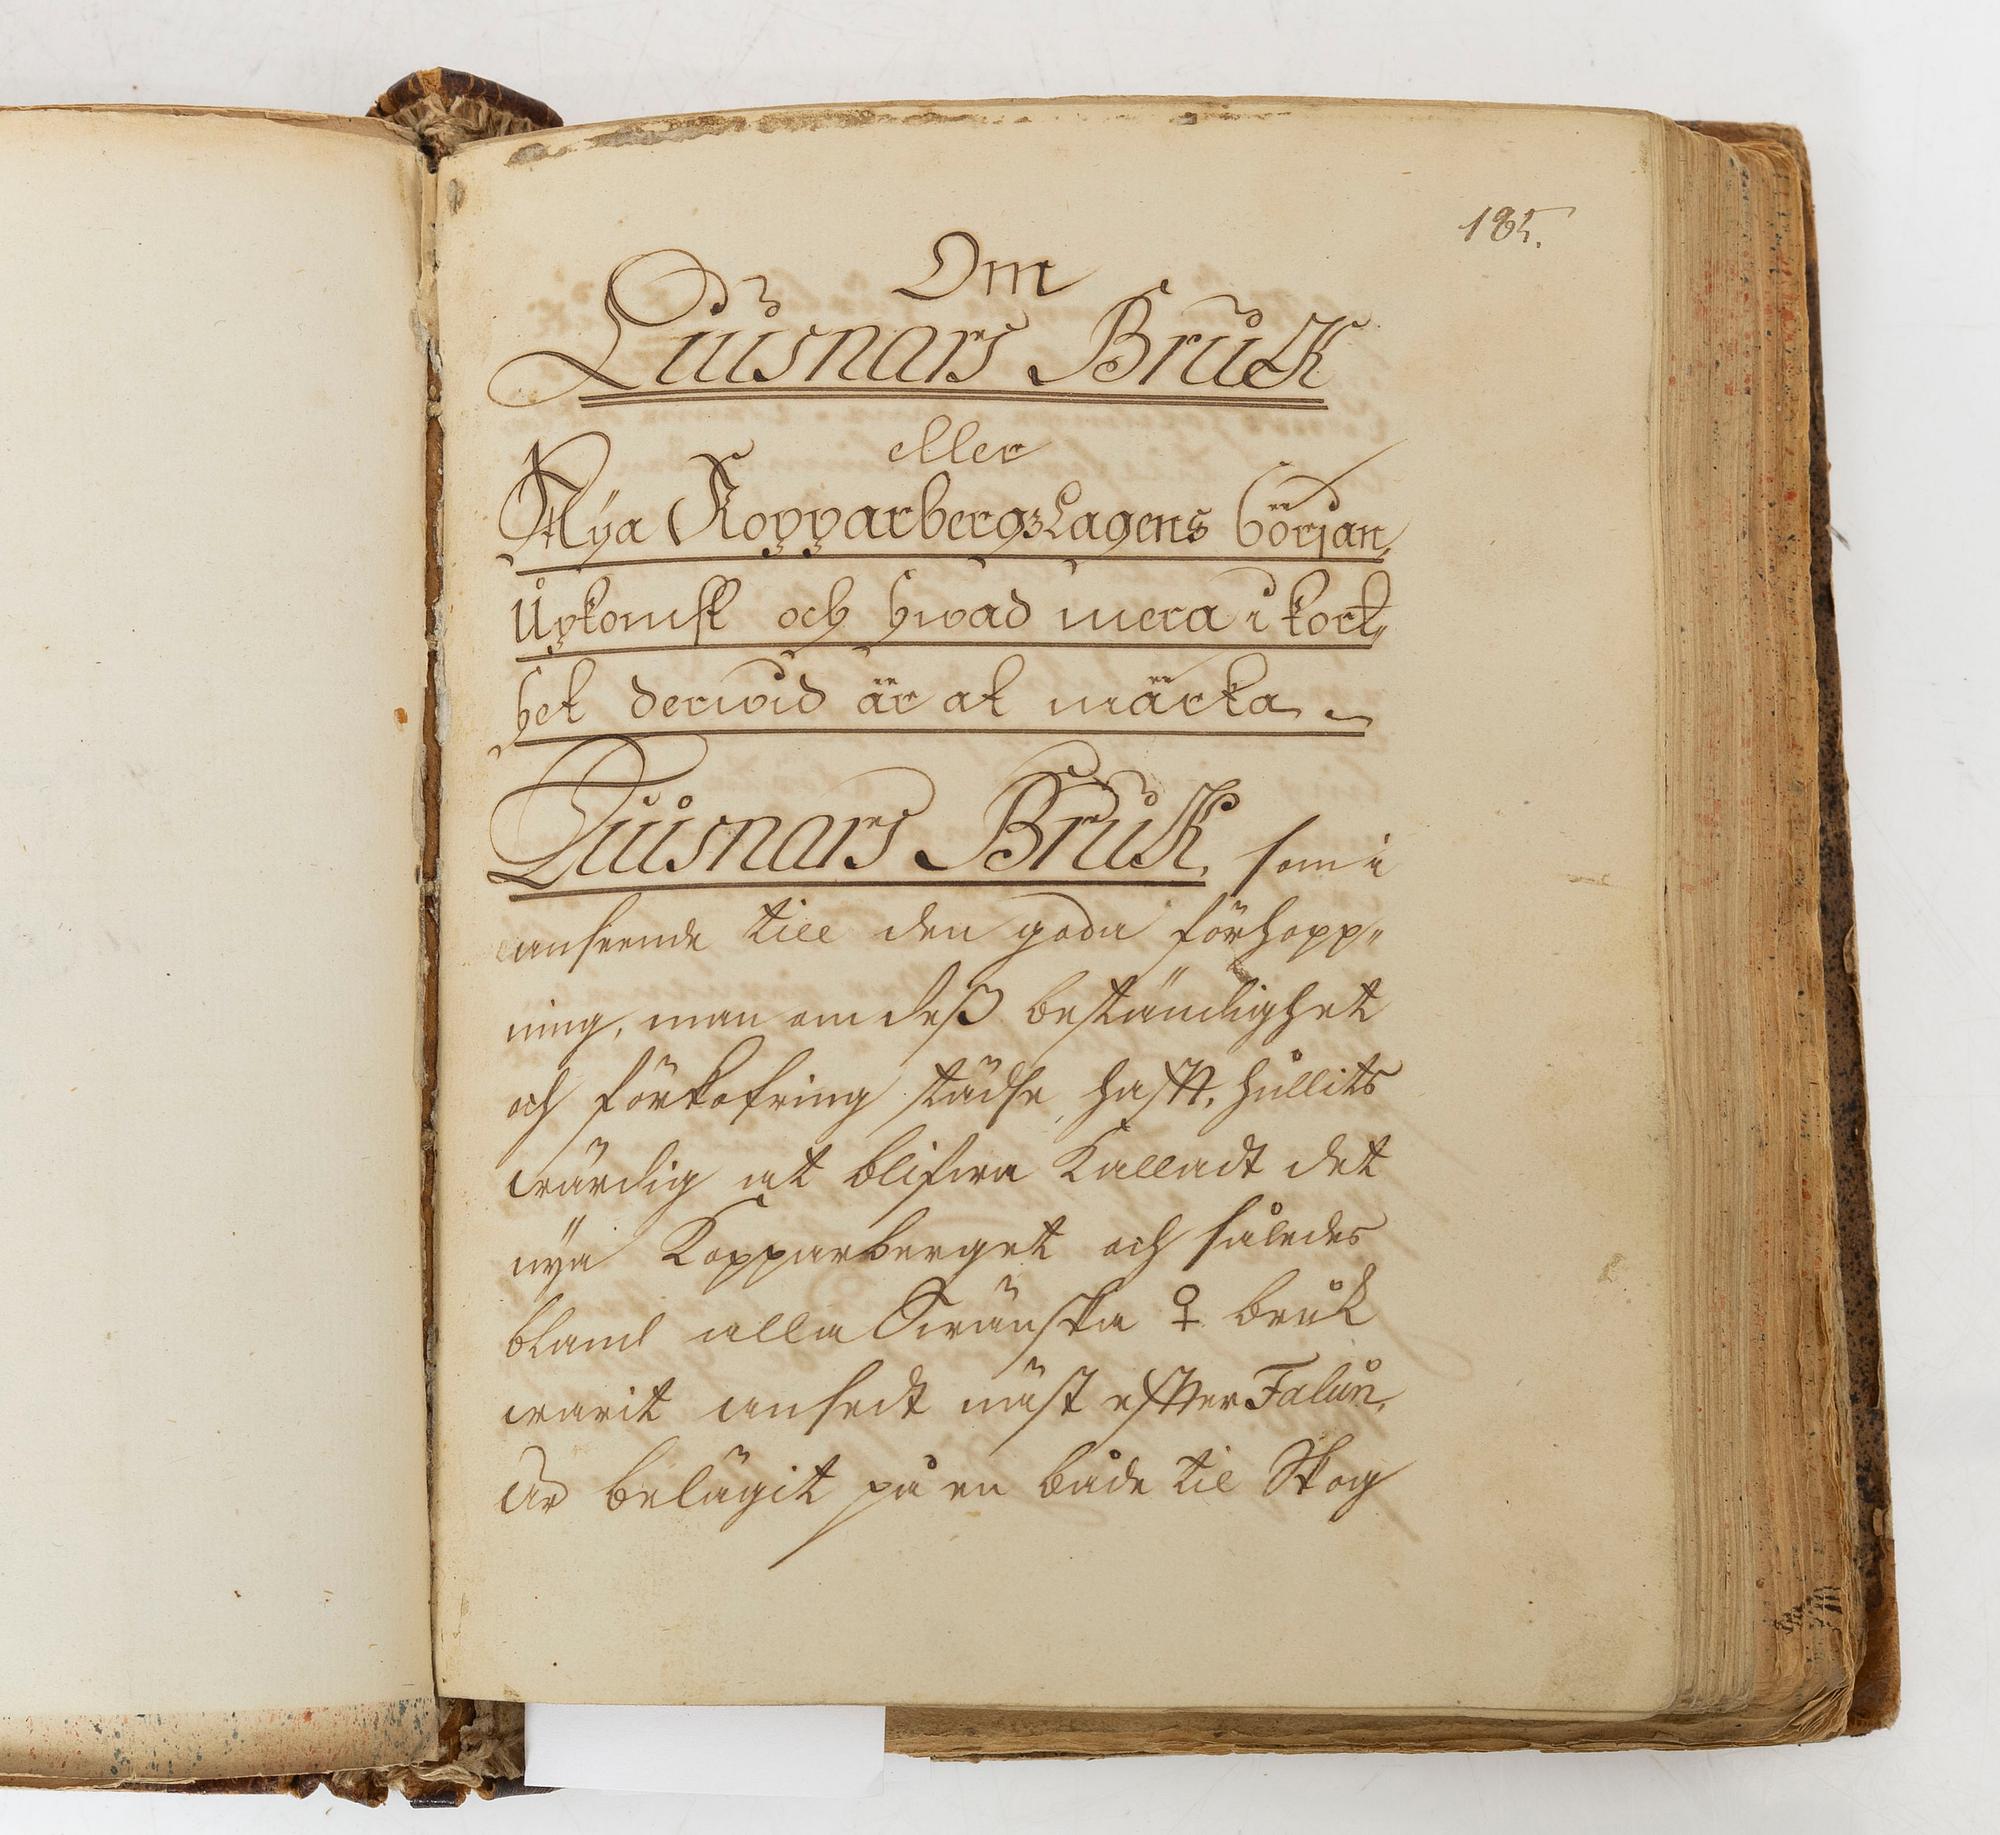 185.
Om
Liusnars Bruk
eller
Nya KopparbergzLagens början,
Upkomst och hwad mera i kort„
het derwid är at märka.
Liusnars Bruk, som i
anseende till den goda förhopp„
ning, man om deß beständighet
och förkofring städse haft, hållits
wärdig at blifwa Kalladt det
nya Kopparberget och således
bland alla Swänska ♀ bruk
warit ansedt näst efter Falun,
är belägit på en både til Skog